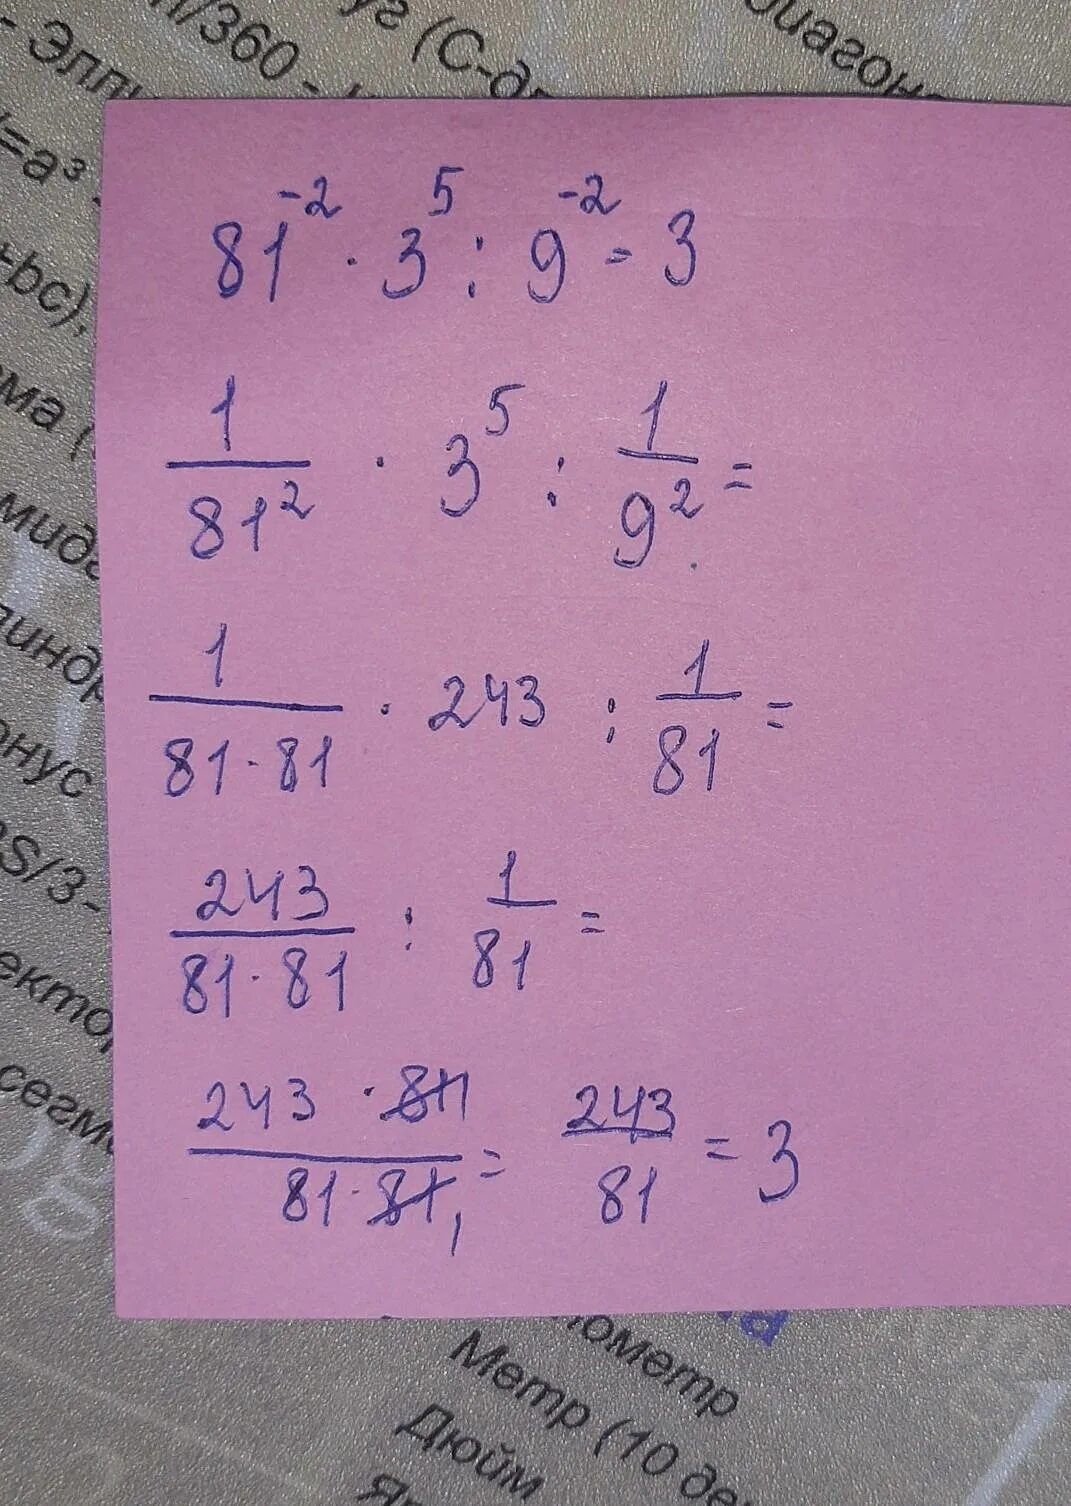 - Элли
/360 -
уг (С-д
диагон
=a³ -
+bc),
ма (
мида
линдр
онус
S/3 -
ектор
сегм
81⁻² · 3⁵ : 9⁻² = 3
1/81² · 3⁵ : 1/9² =
1/(81·81) · 243 : 1/81 =
243/(81·81) : 1/81 =
(243 · 81)/(81·81) = 243/81 = 3
лометр
Метр (10 де
Дюйм
Яр